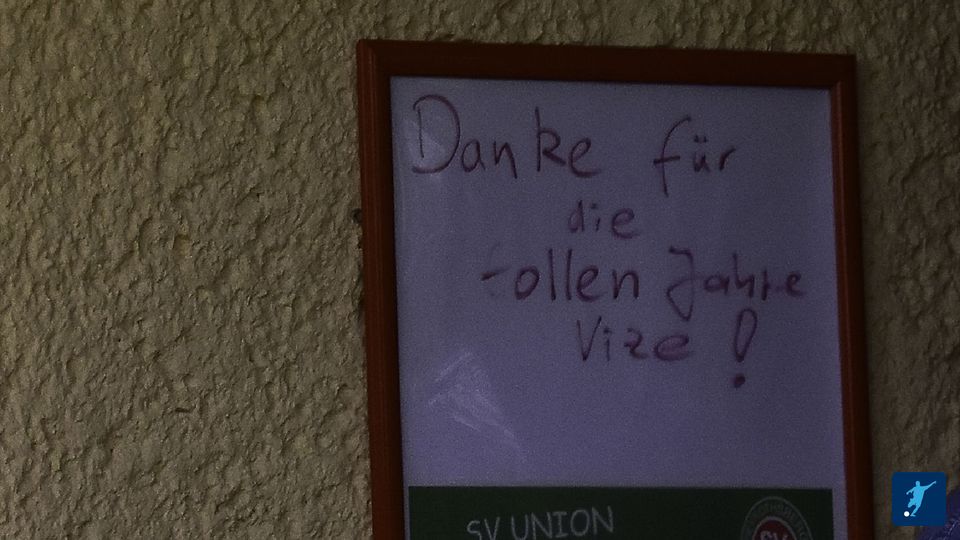 Danke für
die
tollen Jahre
Vize!
SV UNION
SV